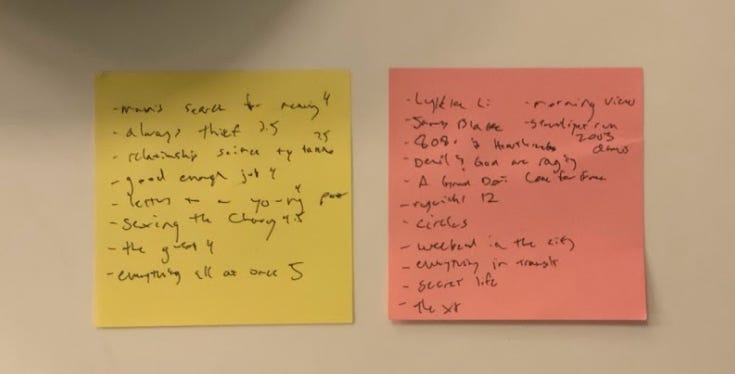 - man's search for meaning 4
- always thief 3.5
- relationship science ty tanno 3.5
- good enough job 4
- letters to a young poet 4
- Sexing the Cherry 4.5
- the guest 4
- everything all at once 5
- Lykke Li
- James Blake
- 808s & Heartbreaks
- Devil & God are raging
- A Grand Don't Come for Free
- 12
- circles
- weekend in the city
- everything in transit
- secret life
- the xx
- morning view
- run 2003 demos